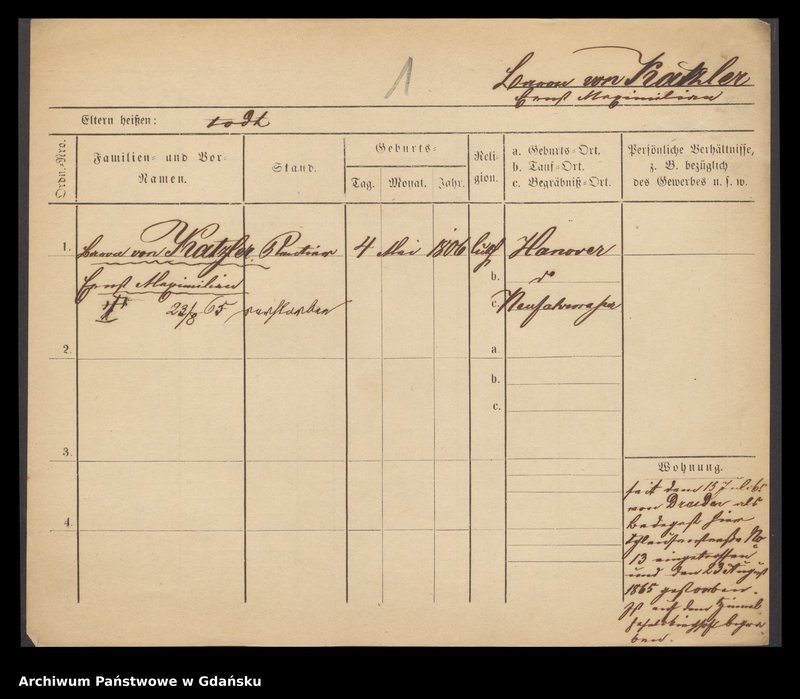 1
Baron von Katzler
Ernst Maximilian
Eltern heißen: todt
Ordn.-Nro.
Familien- und Vor-
Namen.
Stand.
Geburts-
Tag. Monat. Jahr.
Reli-
gion.
a. Geburts-Ort.
b. Tauf-Ort.
c. Begräbniß-Ort.
Persönliche Verhältnisse,
z. B. bezüglich
des Gewerbes u. s. w.
1. Baron von Katzler Rentier 4 Mai 1806 luth Hanover
Ernst Maximilian b. do
23/8 65 verstorben c. Neufahrwasser
2. a.
b.
c.
3.
4.
Wohnung.
seit dem 13 Juli 65
von Dresden als
Badegast hier
Schleusenstraße No
13 eingetroffen
und den 23 August
1865 gestorben.
Ist auf dem Himmel
fahrtskirchhof begra
ben.
Archiwum Państwowe w Gdańsku